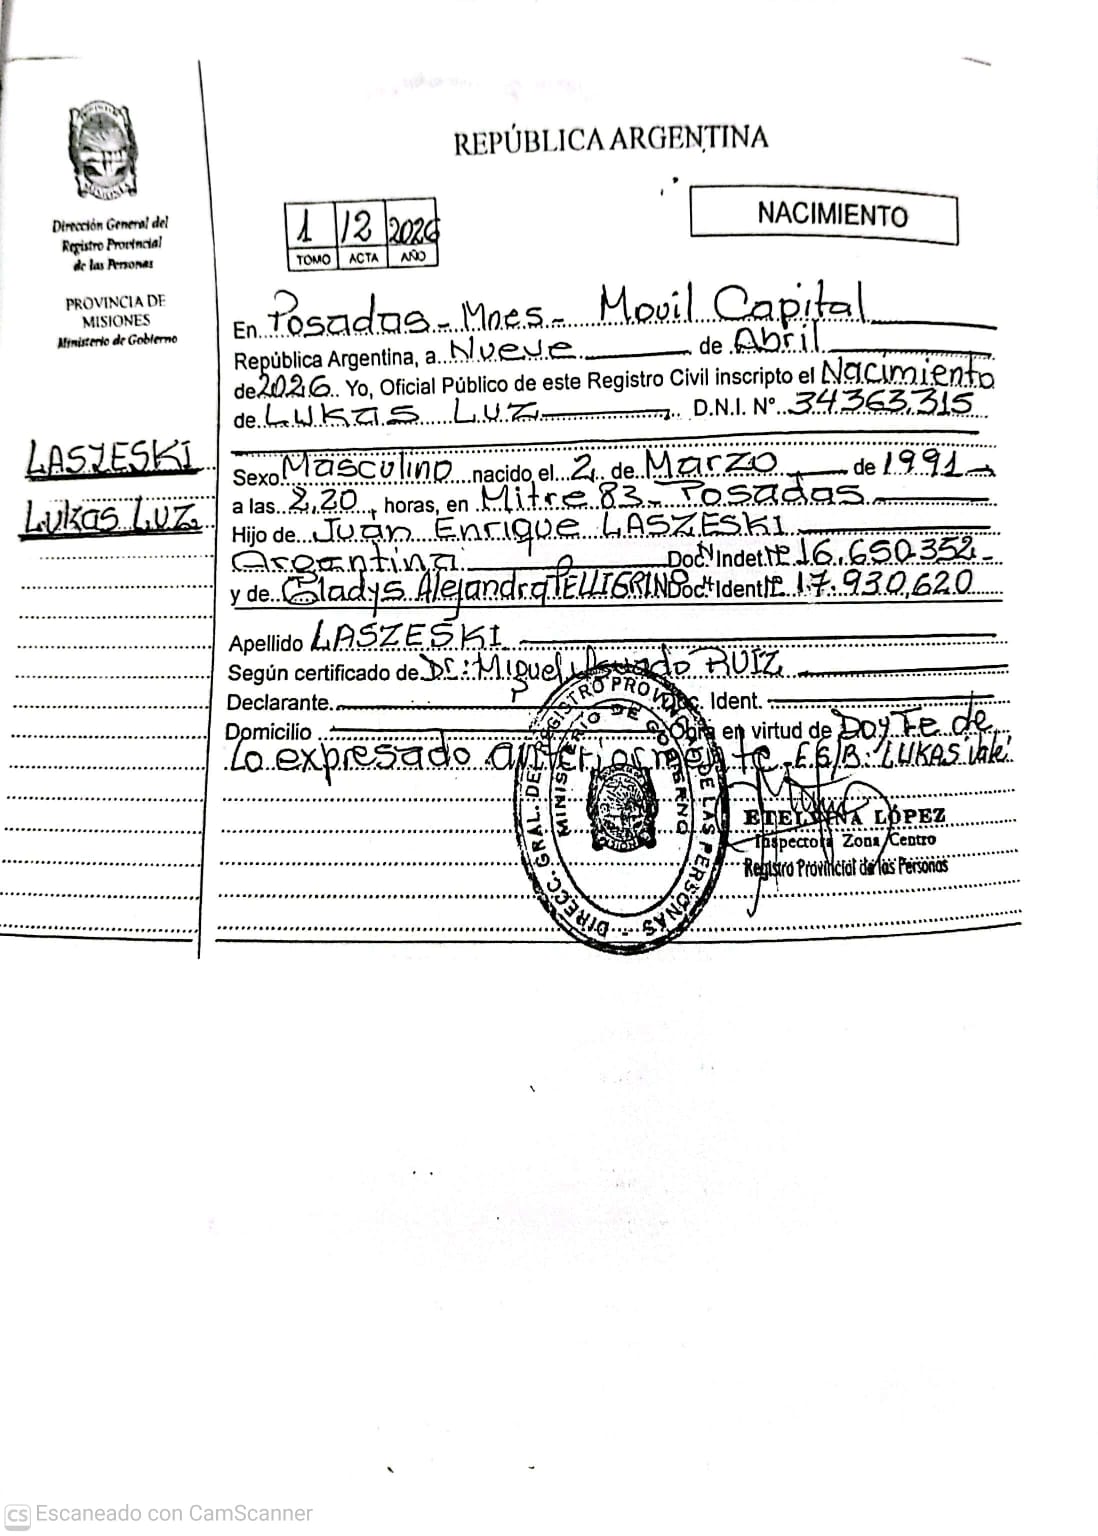 REPÚBLICA ARGENTINA
Dirección General del
Registro Provincial
de las Personas
PROVINCIA DE
MISIONES
Ministerio de Gobierno
1 12 2026
TOMO ACTA AÑO
NACIMIENTO
LASZESKI
Lukas Luz
En Posadas - Mnes - Movil Capital
República Argentina, a Nueve de Abril
de 2026. Yo, Oficial Público de este Registro Civil inscripto el Nacimiento
de LUKAS LUZ D.N.I. Nº 34363.315
Sexo Masculino nacido el 2 de Marzo de 1991
a las 2,20, horas, en Mitre 83 - Posadas
Hijo de Juan Enrique LASZESKI
Argentina Doc. Nº 16.650.352
y de Gladys Alejandra 17.930,620
Apellido LASZESKI
Según certificado de Dr: Miguel RUIZ
Declarante Ident.
Domicilio Obra en virtud de Doy Fe de
lo expresado anteriormente - E6/B: LUKAS Vale
ETELVINA LÓPEZ
Inspectora Zona Centro
Registro Provincial de las Personas
DIRECC. GRAL. DEL REGISTRO PROVINCIAL DE LAS PERSONAS
MINISTERIO DE GOBIERNO
CS Escaneado con CamScanner